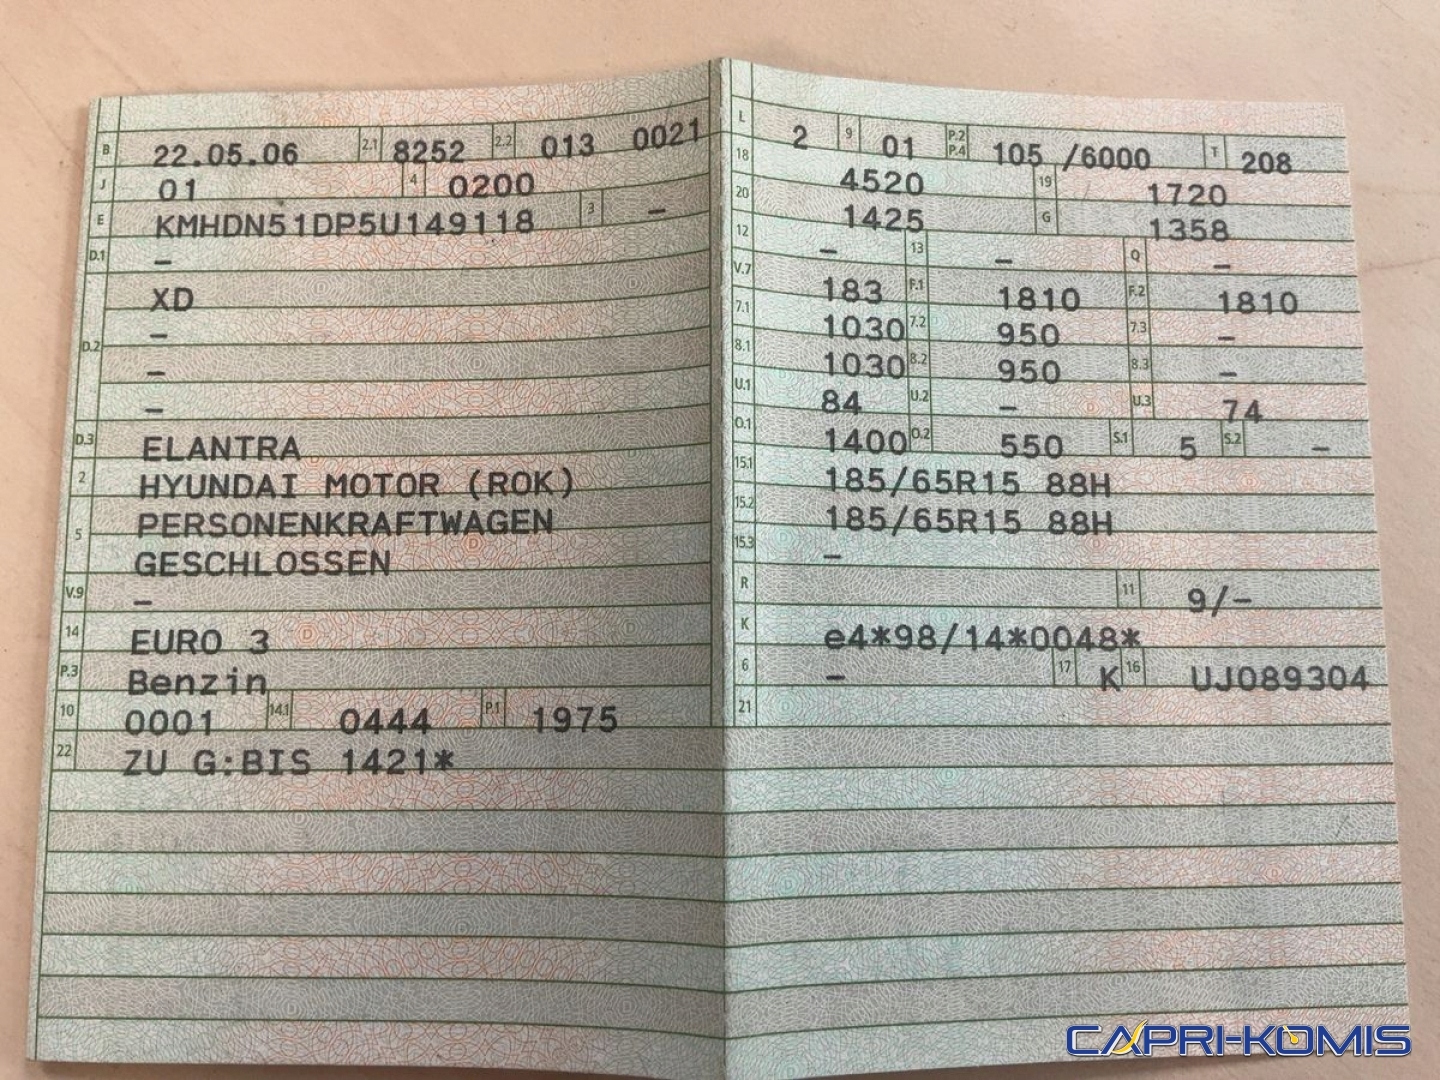 B 22.05.06 2.1 8252 2.2 013 0021
J 01 4 0200
E KMHDN51DP5U149118 3 –
D.1 –
XD
D.2 –
–
–
D.3 ELANTRA
2 HYUNDAI MOTOR (ROK)
5 PERSONENKRAFTWAGEN
GESCHLOSSEN
V.9 –
14 EURO 3
P.3 Benzin
10 0001 14.1 0444 P.1 1975
22 ZU G:BIS 1421*
L 2 9 01 P.2 P.4 105 /6000 T 208
18 4520 19 1720
20 1425 G 1358
12 – 13 – Q –
V.7 183 F.1 1810 F.2 1810
7.1 1030 7.2 950 7.3 –
8.1 1030 8.2 950 8.3 –
U.1 84 U.2 – U.3 74
O.1 1400 O.2 550 S.1 5 S.2 –
15.1 185/65R15 88H
15.2 185/65R15 88H
15.3 –
R 11 9/–
K e4*98/14*0048*
6 – 17 K 16 UJ089304
21
CAPRI-KOMIS